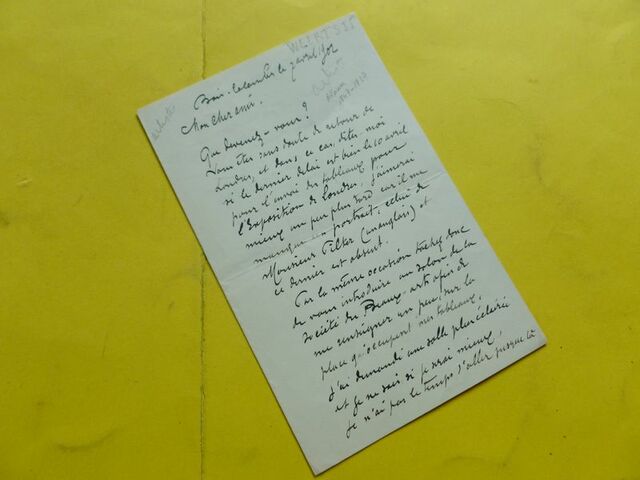 WEERTS J J
artiste
Bois-Colombes le 7 avril 902
Mon cher ami.
Que devenez-vous ?
Vous êtes sans doute de retour de
Londres, et dans ce cas, dites moi
si le dernier délai est bien le 10 avril
pour l'envoi des tableaux pour
l'Exposition de Londres, j'aimerai
mieux un peu plus tard car il me
manque un portrait, celui de
Monsieur Pilter (un anglais) et
ce dernier est absent.
Par la même occasion tachez donc
de vous introduire au salon de la
Société des Beaux-arts afin de
me renseigner un peu, sur la
place qu'occupent mes tableaux,
j'ai demandé une salle plus éclairée
et je ne sais si je serai mieux,
je n'ai pas le temps d'aller jusque là